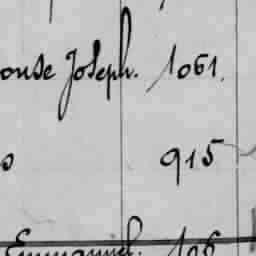 onse Joseph. 1061.
o 915
Emmanuel. 106